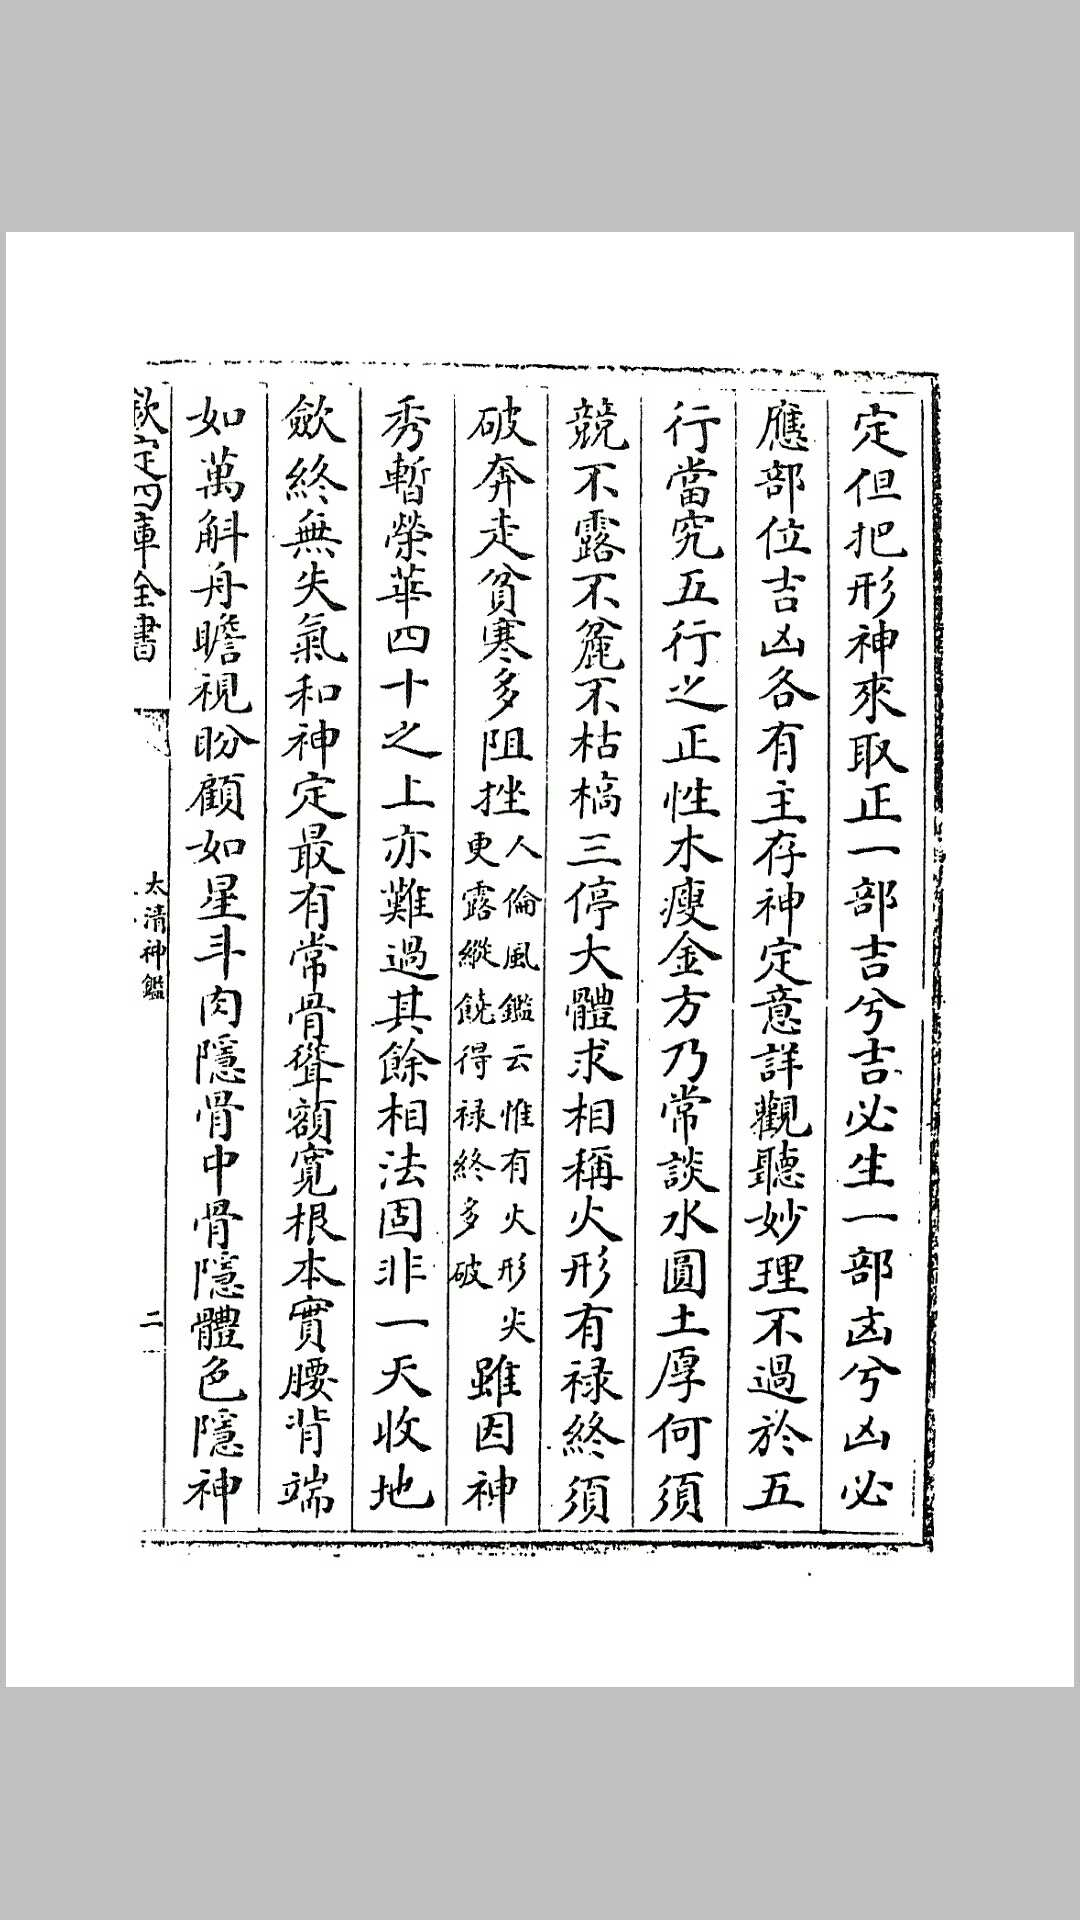 定但把形神來取正一部吉兮吉必生一部凶兮凶必
應部位吉凶各有主存神定意詳觀聽妙理不過於五
行當究五行之正性木瘦金方乃常談水圓土厚何須
競不露不麄不枯槁三停大體求相稱火形有禄終須
破奔走貧寒多阻挫
人倫風鑑云惟有火形尖
更露縱饒得禄終多破
雖因神
秀暫榮華四十之上亦難過其餘相法固非一天收地
斂終無失氣和神定最有常骨聳額寬根本實腰背端
如萬斛舟瞻視盼顧如星斗肉隱骨中骨隱體色隱神
欽定四庫全書
太清神鑑
二